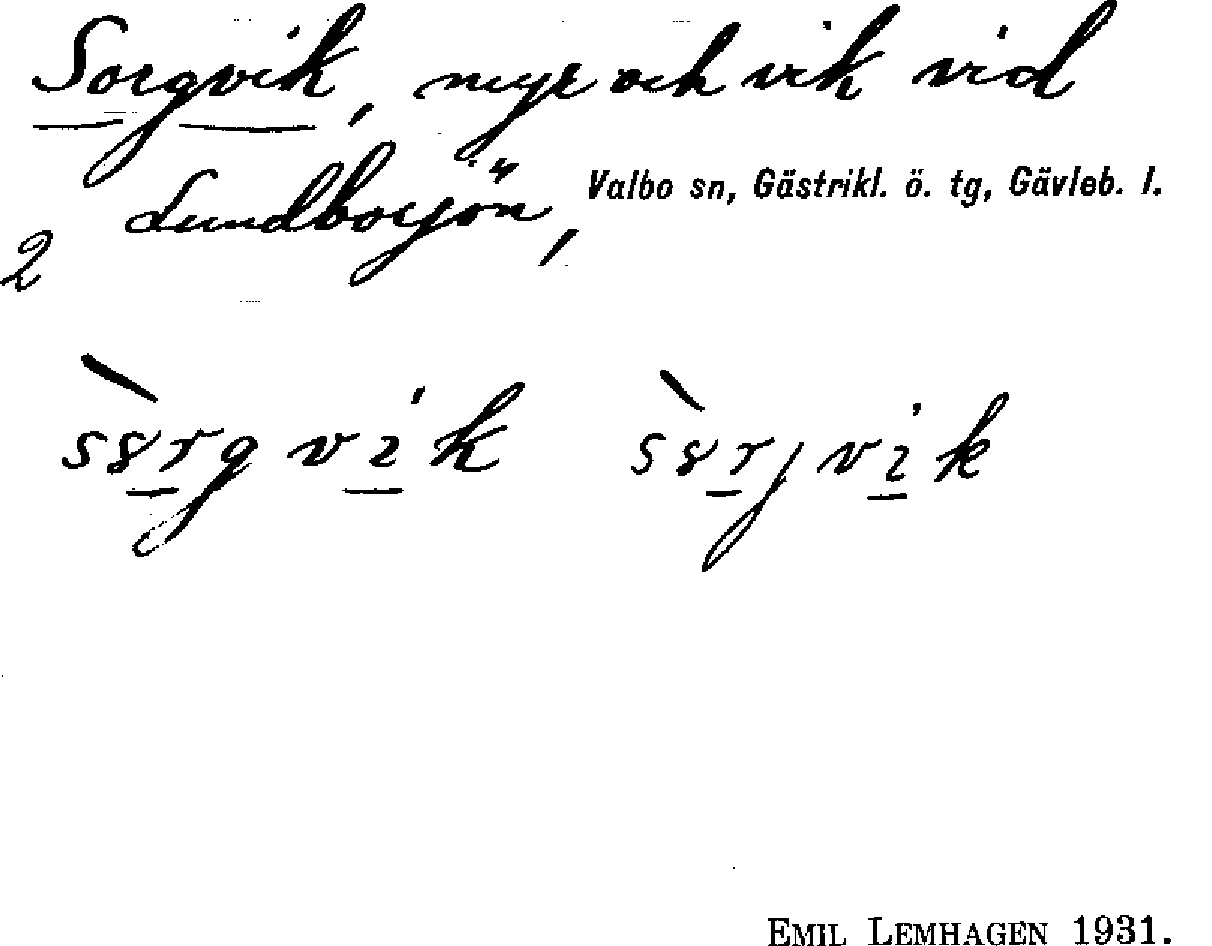 Sorgvik, myr och vik vid
Lundbosjön, Valbo sn, Gästrikl. ö. tg, Gävleb. l.
2
EMIL LEMHAGEN 1931.